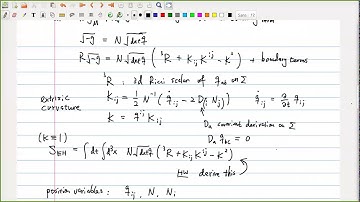 √-g = N√det q
R√-g = N√det q (³R + K_ij K^ij - K²) + boundary terms
³R : 3d Ricci scalar of q_ab on Σ
extrinsic curvature K_ij = 1/2 N⁻¹ (q̇_ij - 2 D_(i N_j)) q̇_ij = ∂/∂t q_ij
K = q^ij K_ij
D_a covariant derivation on Σ
D_a q_bc = 0
(K=1)
S_EH = ∫dt ∫d³x N√det q (³R + K_ij K^ij - K²)
HW derive this
position variables: q_ij, N, N_i